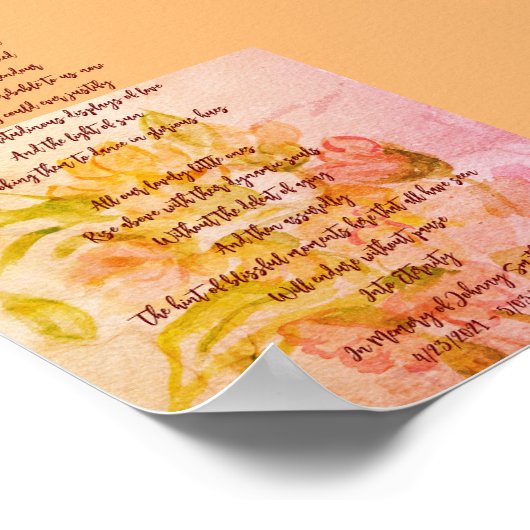 isible to us now
could ever justify
itudinous displays of love
And the light of sun
king them to dance in glorious hues
All our lovely little ones
Rise above with their dynamic souls
Without the defeat of aging
And then assuredly
The hint of blissful moments love that all have seen
Will endure without pause
Into Eternity
In Memory of Johnny
4/23/2021